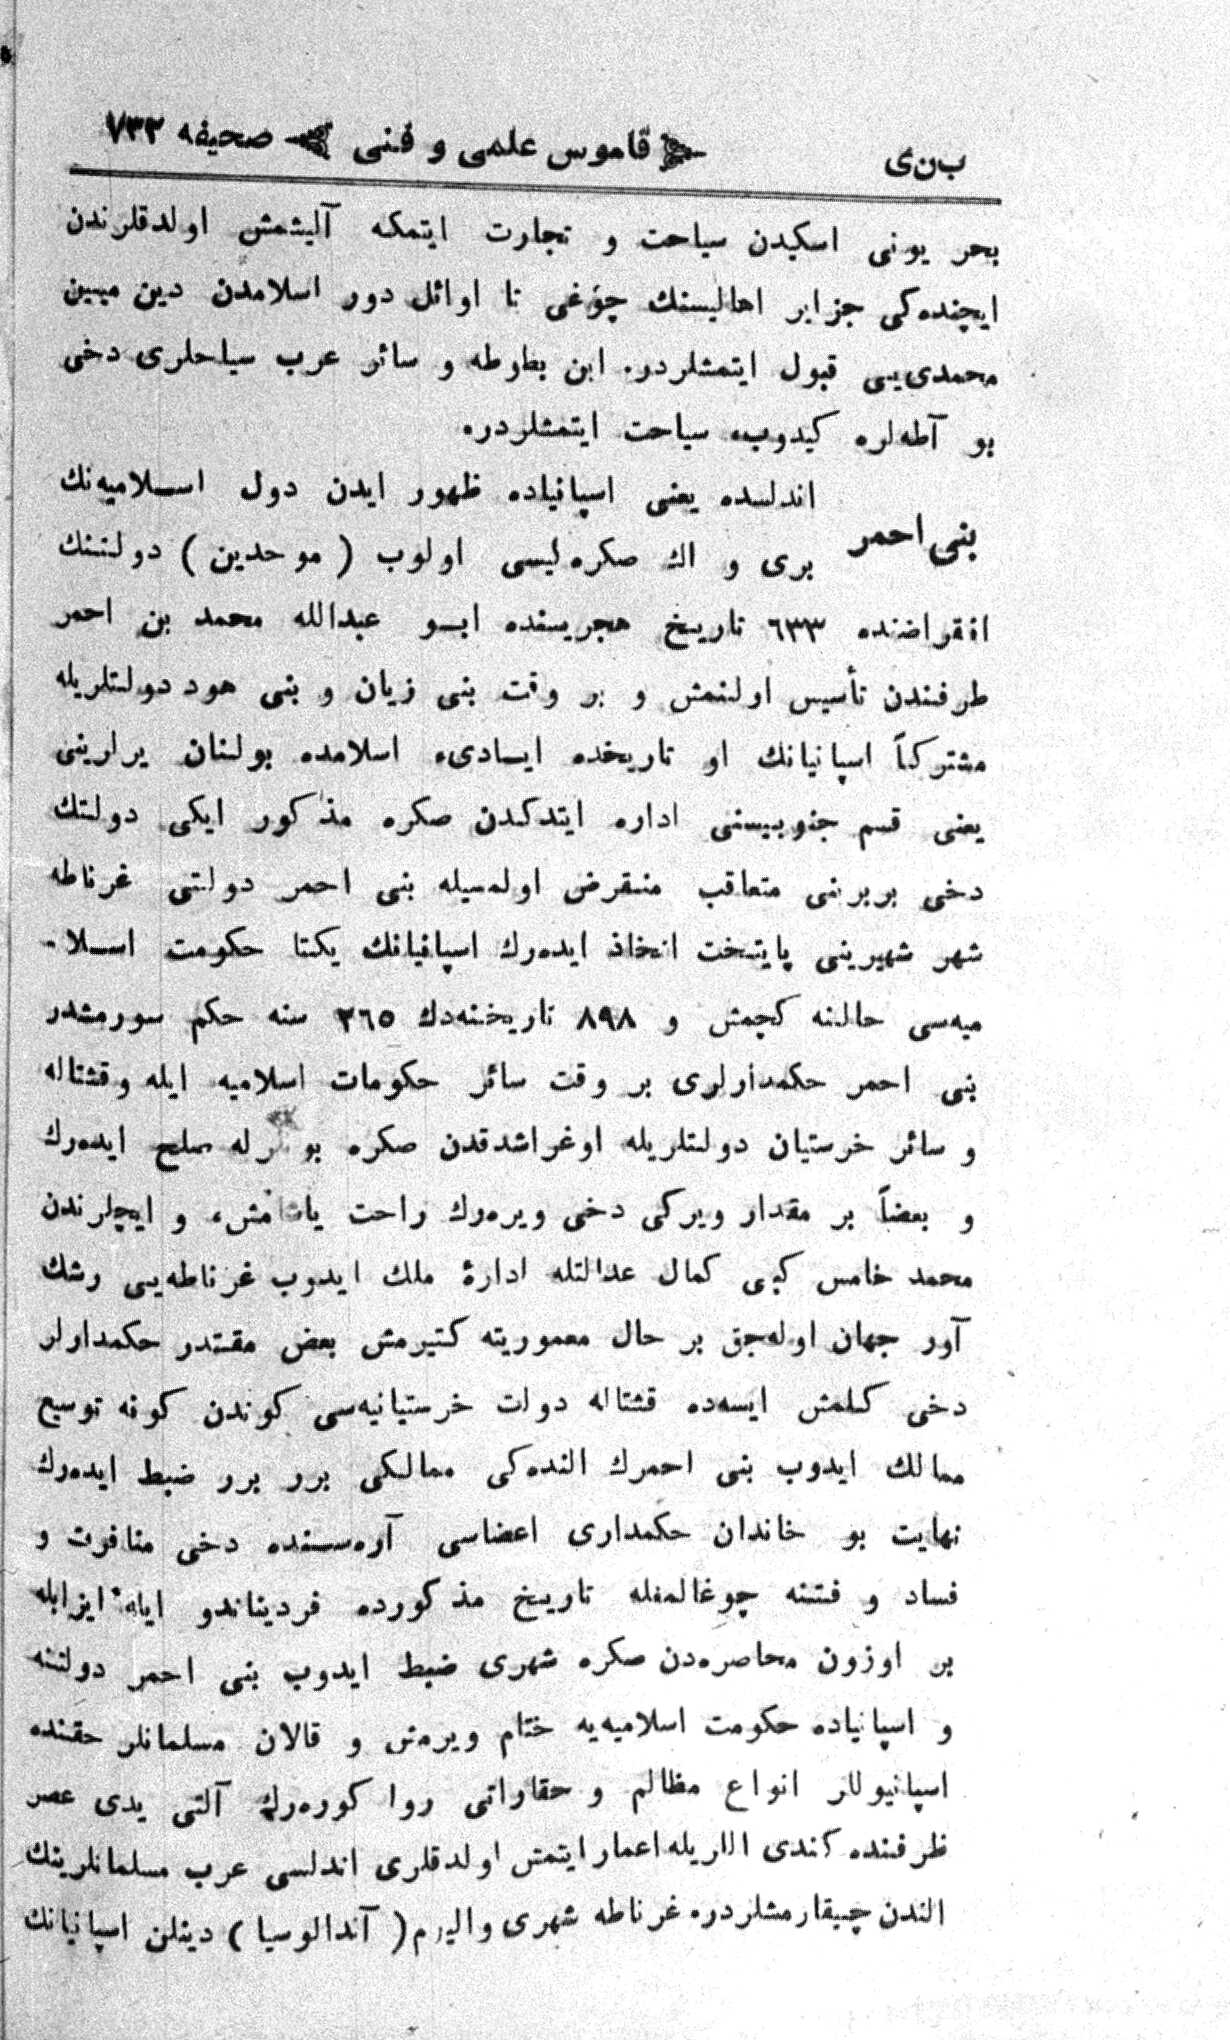 ب‌ن‌ى قاموس علمى و فنى صحيفه ٧٣٣
بحر يونى اسكيدن سياحت و تجارت ايتمكه آليشمش اولدقلرندن
ايچنده‌كى جزاير اهاليسنك چوغى تا اوائل دور اسلامدن دين مبين
محمدى‌يى قبول ايتمشلردر. ابن بطوطه و سائر عرب سياحلرى دخى
بو آطه‌لره كيدوب، سياحت ايتمشلردر.
بنى احمر اندلسده يعنى اسپانياده ظهور ايدن دول اسـلاميه‌نك
برى و اك صكره‌ليسى اولوب ( موحدين ) دولتنك
انقراضنده ٦٣٣ تاريخ هجريسنده ابـو عبدالله محمد بن احمر
طرفندن تأسيس اولنمش و بر وقت بنى زيان و بنى هود دولتلريله
مشتركاً اسپانيانك او تاريخده ايـادىء اسلامده بولنان يرلرينى
يعنى قسم جنوبيسنى اداره ايتدكدن صكره مذكور ايكى دولتك
دخى بربرنى متعاقب منقرض اولمسيله بنى احمر دولتى غرناطه
شهر شهيرينى پايتخت اتخاذ ايده‌رك اسپانيانك يكتا حكومت اسـلا-
ميه‌سى حالنه كچمش و ٨٩٨ تاريخنه‌دك ٢٦٥ سنه حكم سورمشدر
بنى احمر حكمدارلرى بر وقت سائر حكومات اسلاميه ايله وقشتاله
و سائر خرستيان دولتلريله اوغراشدقدن صكره بونلرله صلح ايده‌رك
و بعضاً بر مقدار ويركى دخى ويره‌رك راحت ياشامش، و ايچلرندن
محمد خامس كبى كمال عدالتله ادارۀ ملك ايدوب غرناطه‌يى رشك
آور جهان اوله‌جق بر حال معموريته كتيرمش بعض مقتدر حكمدارلر
دخى كلمش ايسه‌ده قشتاله دولت خرستيانيه‌سى كوندن كونه توسيع
ممالك ايدوب بنى احمرك النده‌كى ممالكى برر برر ضبط ايده‌رك
نهايت بو خاندان حكمدارى اعضاسى آره‌سـنده دخى منافرت و
فساد و فتنه چوغالمغله تاريخ مذكورده فرديناندو ايله ايزابله
بر اوزون محاصره‌دن صكره شهرى ضبط ايدوب بنى احمر دولتنه
و اسپانياده حكومت اسلاميه‌يه ختام ويرمش و قالان مسلمانلر حقنده
اسپانيوللر انواع مظالم و حقاراتى روا كوره‌رك آلتى يدى عصر
ظرفنده كندى اللريله اعمار ايتمش اولدقلرى اندلسى عرب مسلمانلرينك
الندن چيقارمشلردر. غرناطه شهرى واليوم ( آندالوسيا ) دينلن اسپانيانك